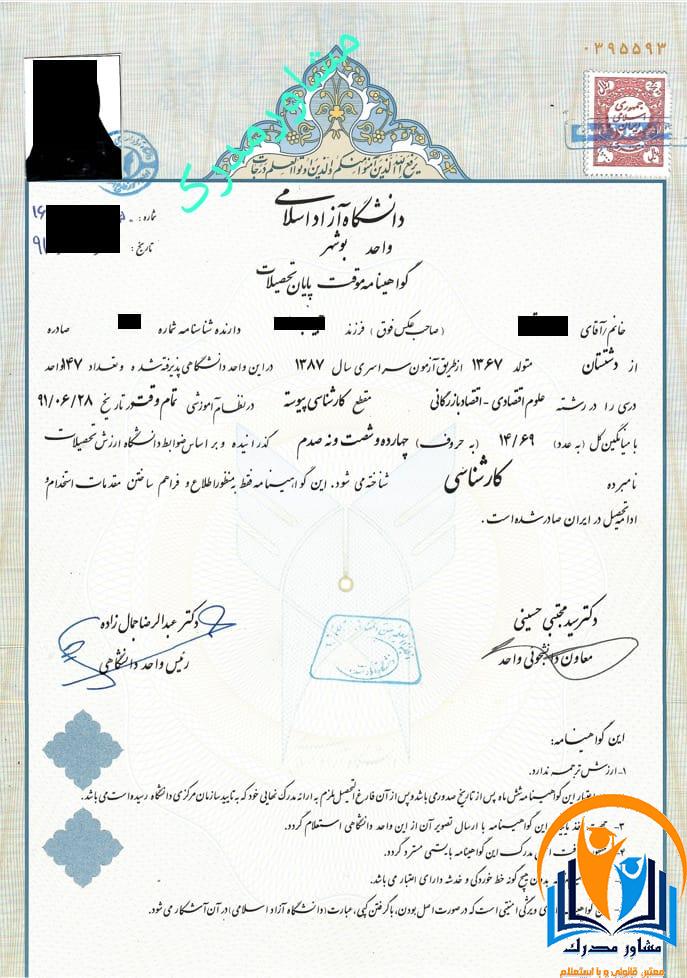 ۰۳۹۵۵۹۳
مشاور مدرک
جمهوری
اسلامی
ایران
یرفع الله الذین آمنوا منکم والذین اوتوا العلم درجات
دانشگاه آزاد اسلامی
واحد بوشهر
گواهینامه موقت پایان تحصیلات
شماره:
تاریخ: ۹۱
خانم/آقای (صاحب عکس فوق) فرزند دارنده شناسنامه شماره صادره
از دشتستان متولد ۱۳۶۷ از طریق آزمون سراسری سال ۱۳۸۷ در این واحد دانشگاهی پذیرفته شده و تعداد ۱۴۷ واحد
درسی را در رشته علوم اقتصادی - اقتصاد بازرگانی مقطع کارشناسی پیوسته در نظام آموزشی تمام وقت در تاریخ ۹۱/۰۶/۲۸
با میانگین کل (به عدد) ۱۴/۶۹ (به حروف) چهارده و شصت و نه صدم گذرانیده و بر اساس ضوابط دانشگاه ارزش تحصیلات
نامبرده کارشناسی شناخته می شود. این گواهینامه فقط به منظور اطلاع و فراهم ساختن مقدمات استخدام و
ادامه تحصیل در ایران صادر شده است.
دکتر سید مجتبی حسینی
معاون دانشجوئی واحد
دکتر عبدالرضا جمال زاده
رئیس واحد دانشگاهی
این گواهینامه:
۱- ارزش ترجمه ندارد.
اعتبار این گواهینامه شش ماه پس از تاریخ صدور می باشد و پس از آن فارغ التحصیل ملزم به ارائه مدرک نهایی خود که به تایید سازمان مرکزی دانشگاه رسیده است می باشد.
۳- جهت اخذ تاییدیه این گواهینامه با ارسال تصویر آن از این واحد دانشگاهی استعلام گردد.
۴- مدرک این گواهینامه بایستی مسترد گردد.
بدون هیچ گونه خط خوردگی و خدشه دارای اعتبار می باشد.
گواهینامه ویژگی امنیتی است که در صورت اصل بودن، با گرفتن کپی، عبارت (دانشگاه آزاد اسلامی) در آن آشکار می شود.
مشاور مدرک
معتبر، قانونی و با استعلام